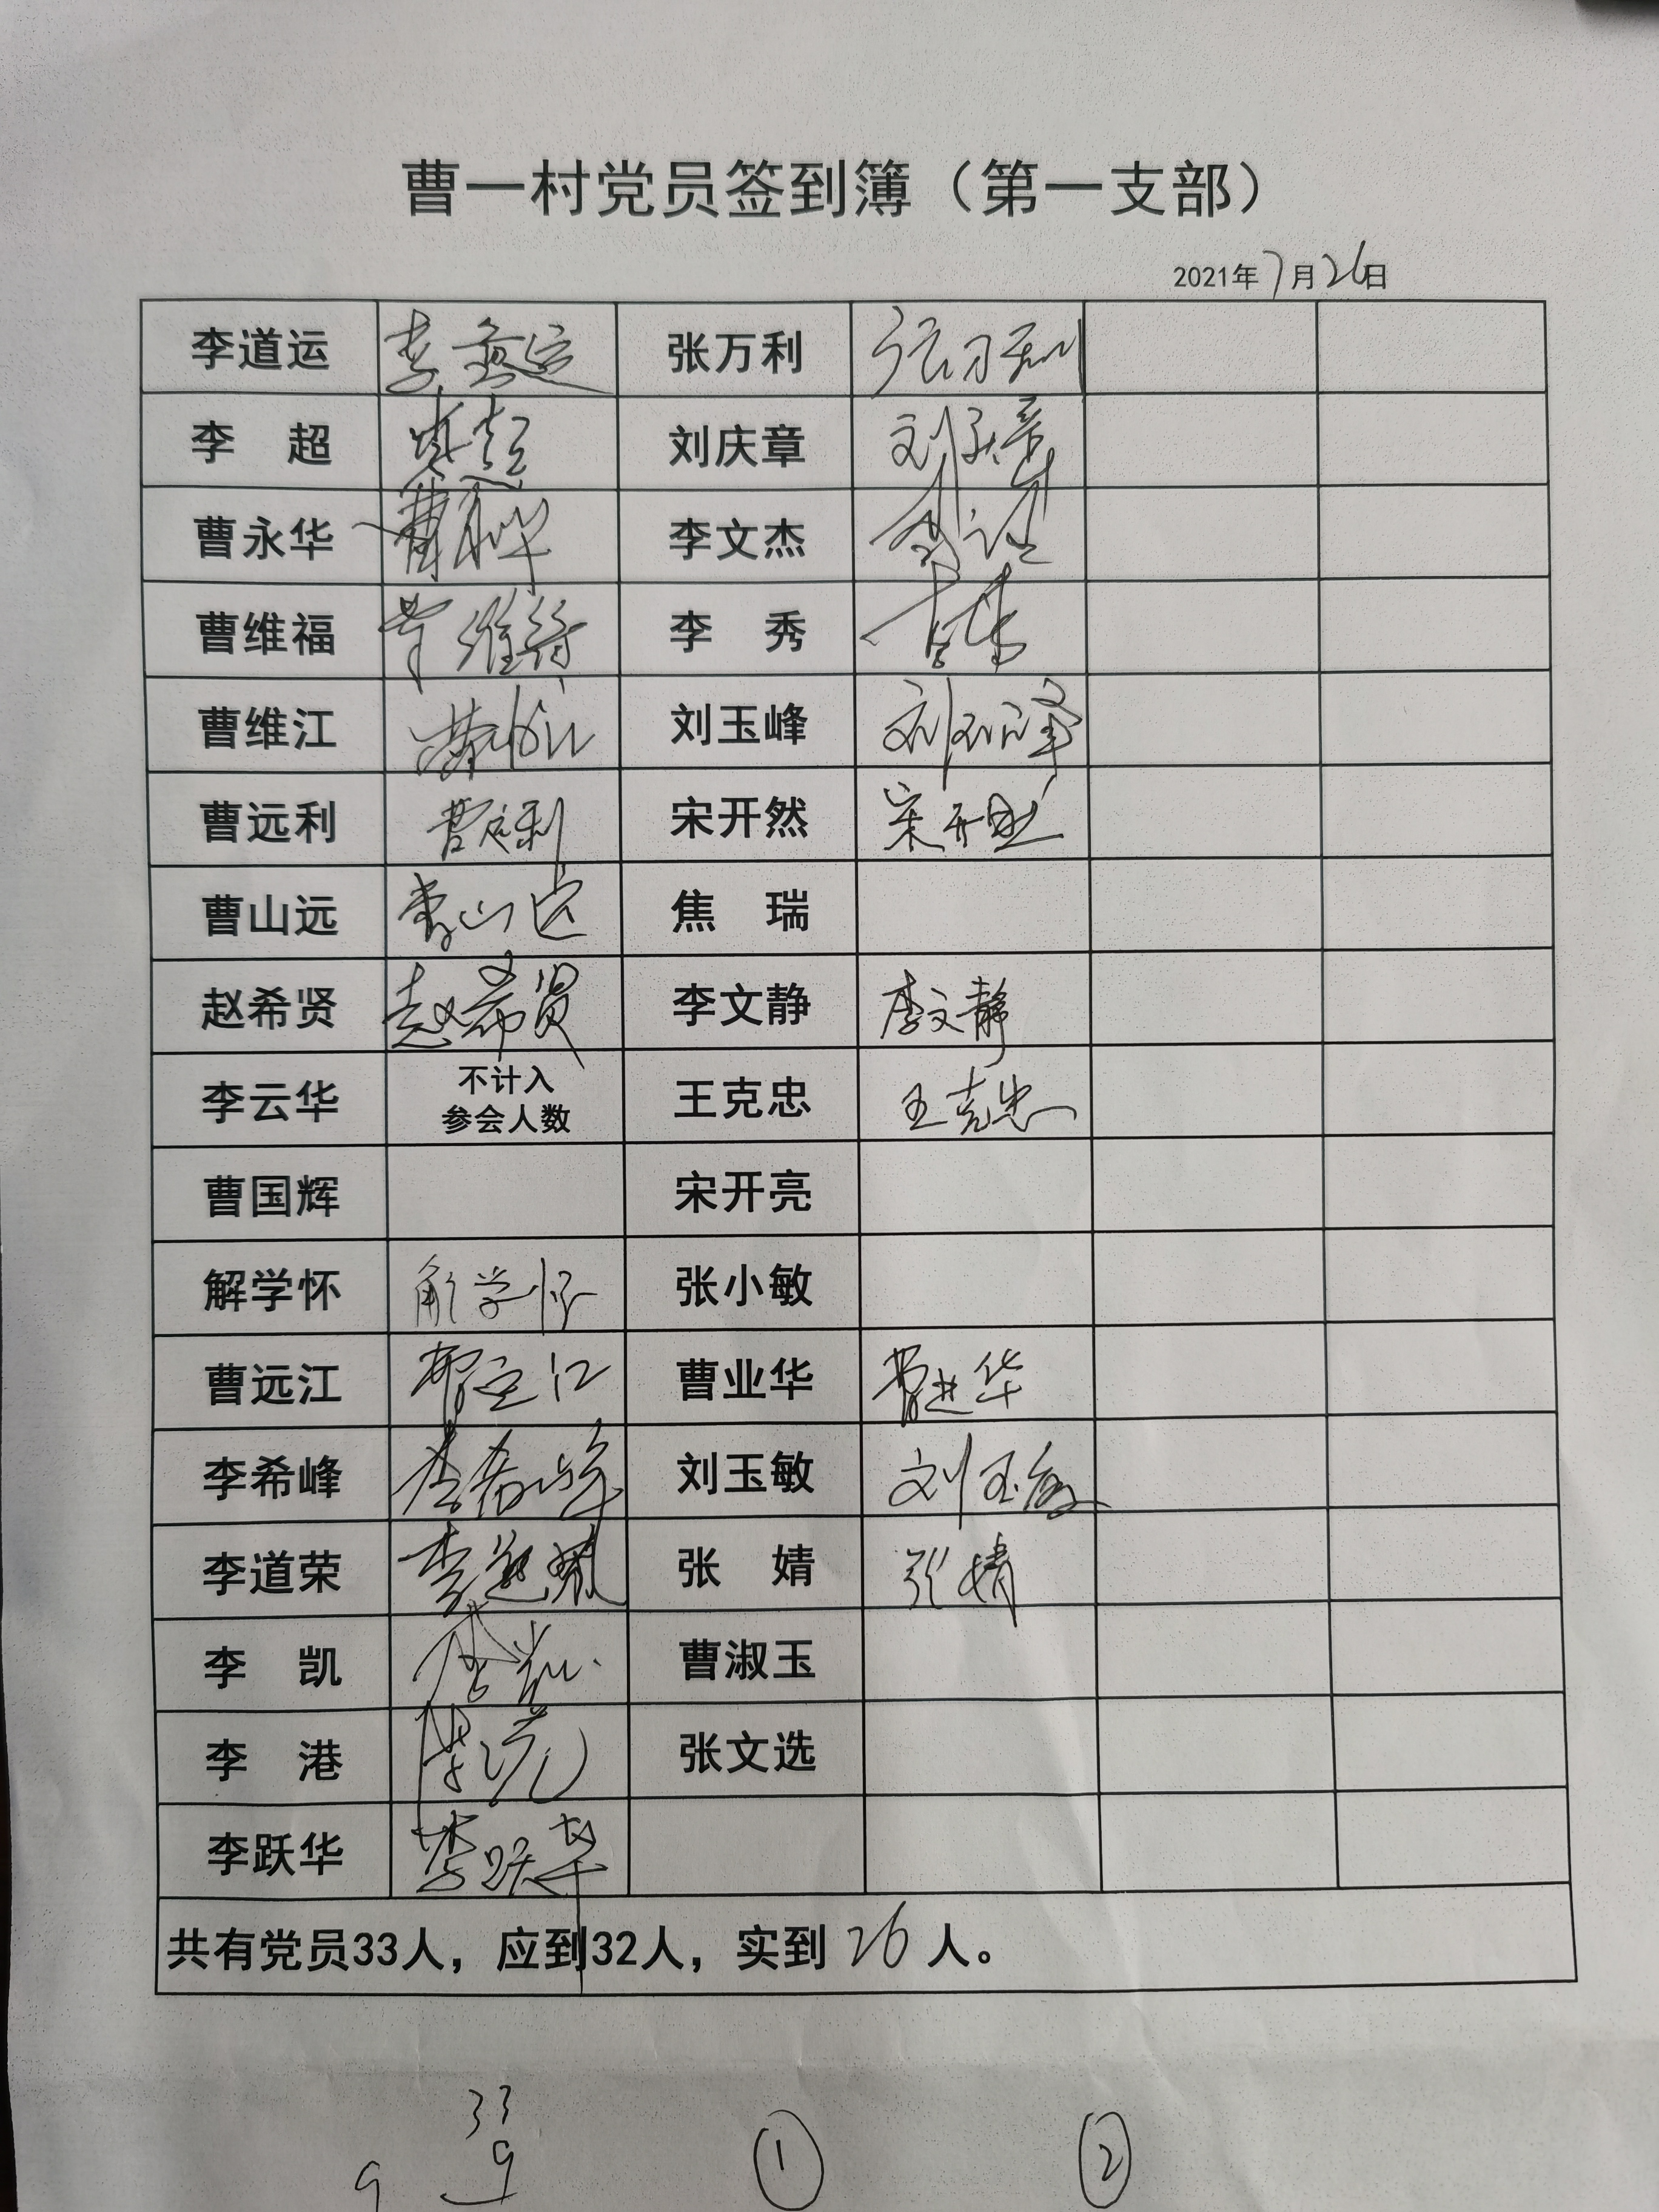 曹一村党员签到簿（第一支部）
2021年7月26日
李道运 李道运 张万利 张万利
李 超 李超 刘庆章 刘庆章
曹永华 曹永华 李文杰
曹维福 曹维福 李 秀 李秀
曹维江 曹维江 刘玉峰 刘玉峰
曹远利 曹远利 宋开然 宋开然
曹山远 曹山远 焦 瑞
赵希贤 赵希贤 李文静 李文静
李云华 不计入 参会人数 王克忠 王克忠
曹国辉 宋开亮
解学怀 解学怀 张小敏
曹远江 曹远江 曹业华 曹业华
李希峰 李希峰 刘玉敏 刘玉敏
李道荣 李道荣 张 婧 张婧
李 凯 李凯 曹淑玉
李 港 李港 张文选
李跃华 李跃华
共有党员33人，应到32人，实到 26 人。
33
9 9 ① ②